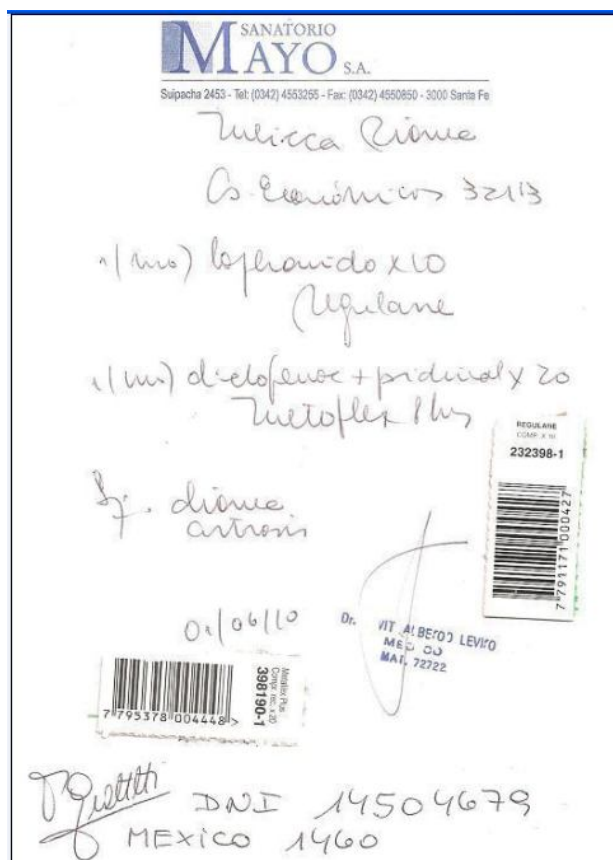 SANATORIO
MAYO S.A.
Suipacha 2453 - Tel: (0342) 4553255 - Fax: (0342) 4550850 - 3000 Santa Fe
Cs. Económicas 32113
1(uno) x 10
Regulane
1(uno) diclofenac + pridinol x 20
Metoflex Plus
artrosis
REGULANE
COMP. X 10
232398-1
7 791171 000427
01/06/10
Dr. VIT ALBERTO
MAT. 72722
Metaflex Plus
Compr. rec. x 20
398190-1
7 795378 004448 >
DNI 14504679
MEXICO 1460